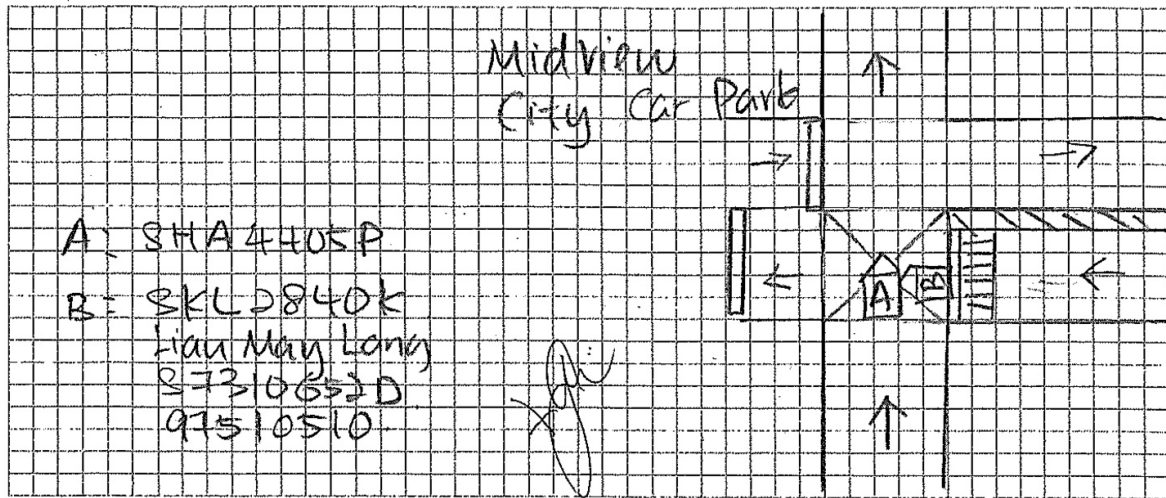 Midview
City Car Park
A: SHA4405P
B: SKL2840K
Liau May Lang
S7310652D
97510510
A
B